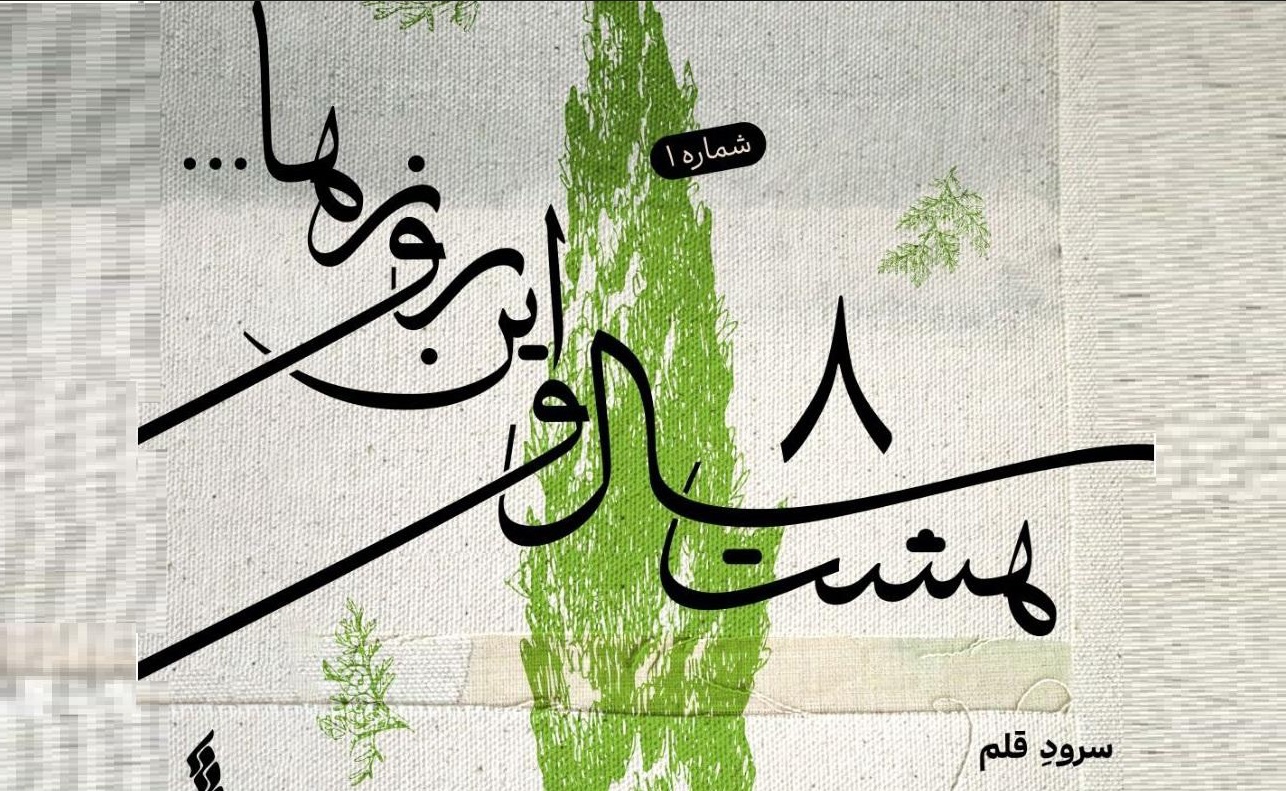 شماره ۱
۸
هشت سال و
این روزها...
سرودِ قلم